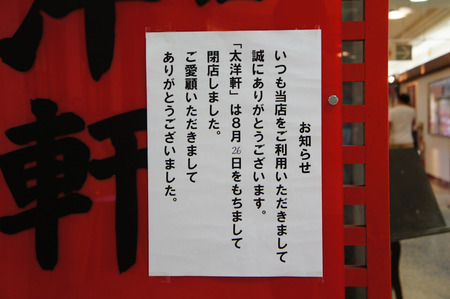 お知らせ
いつも当店をご利用いただきまして
誠にありがとうございます。
「太洋軒」は8月26日をもちまして
閉店しました。
ご愛顧いただきまして
ありがとうございました。
軒